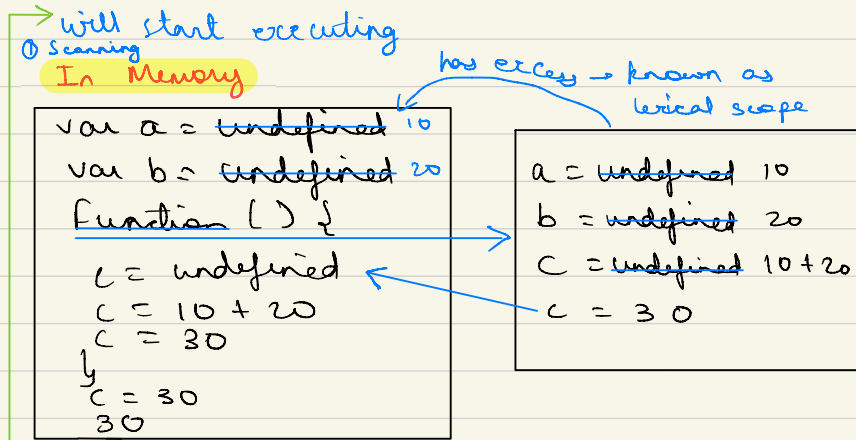 will start executing
① Scanning
In Memory
has excess → known as
lexical scope
var a = undefined 10
var b = undefined 20
function () {
c = undefined
c = 10 + 20
c = 30
}
c = 30
30
a = undefined 10
b = undefined 20
c = undefined 10 + 20
c = 30